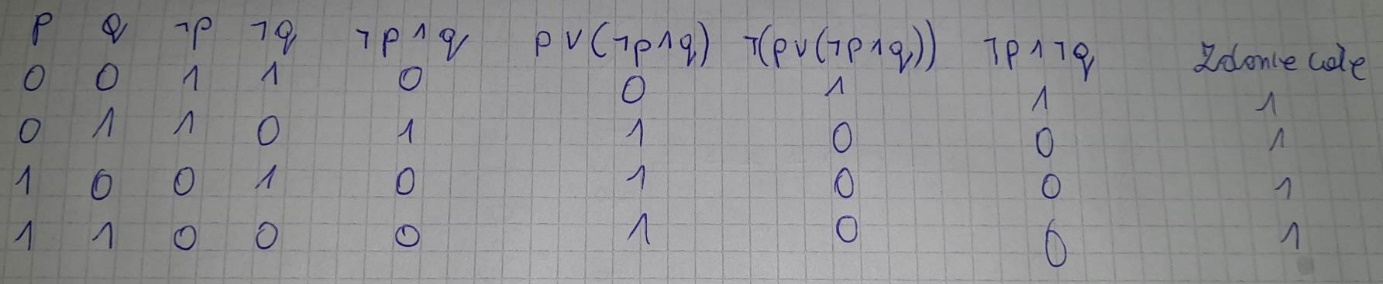 p q ¬p ¬q ¬p∧q p∨(¬p∧q) ¬(p∨(¬p∧q)) ¬p∧¬q Zdanie całe
0 0 1 1 0 0 1 1 1
0 1 1 0 1 1 0 0 1
1 0 0 1 0 1 0 0 1
1 1 0 0 0 1 0 0 1